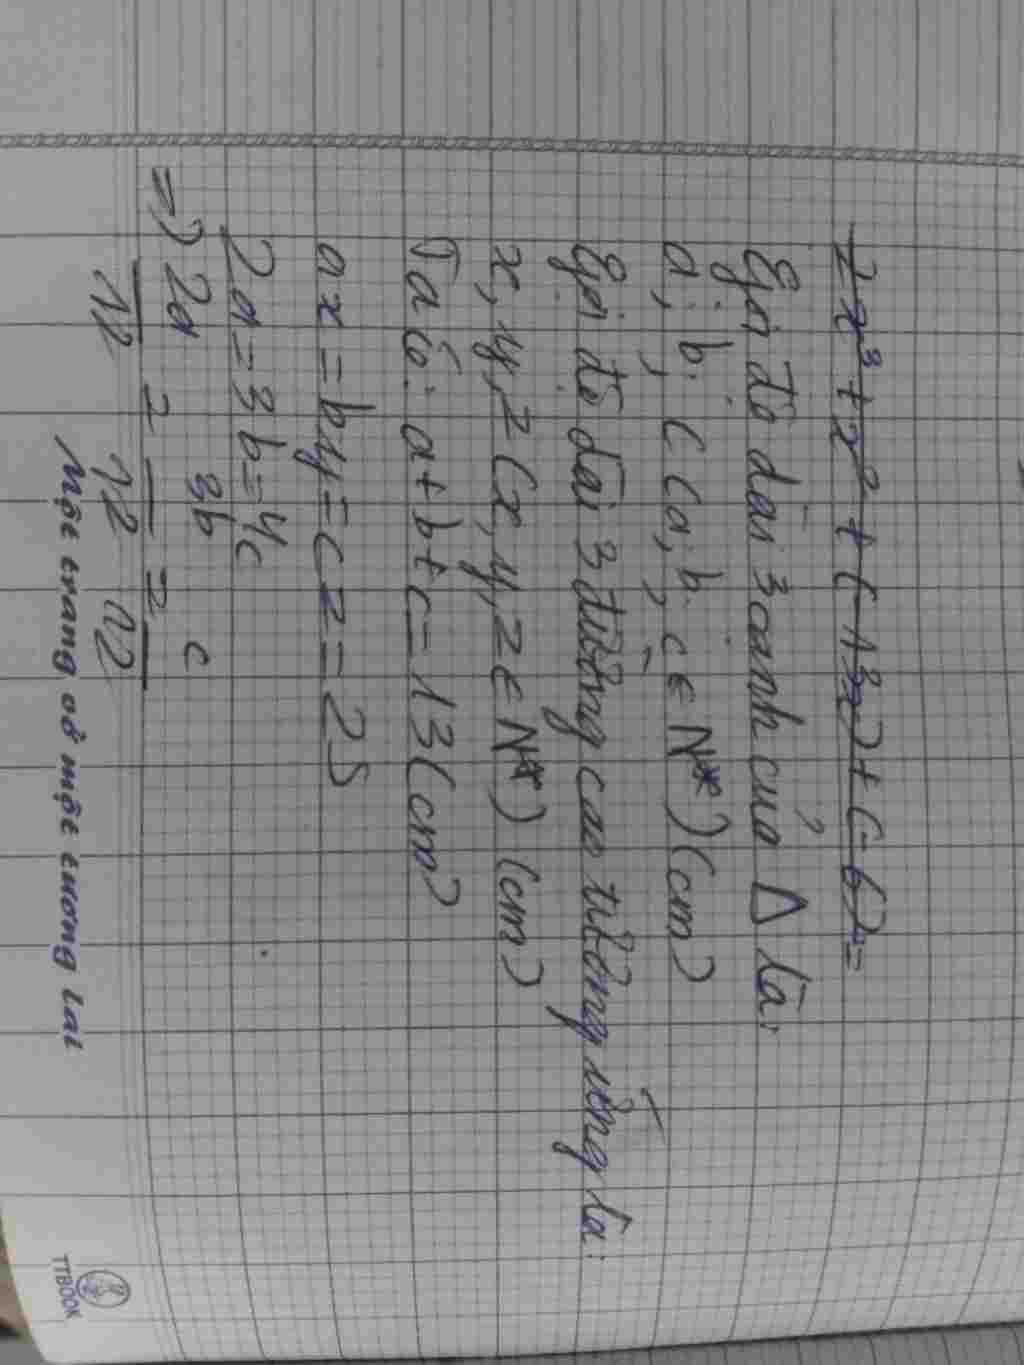 2x³ + x² + (-13x) + (-6) =
Gọi độ dài 3 cạnh của Δ là:
a; b; c (a; b; c ∈ N*) (cm)
Gọi độ dài 3 đường cao tương ứng là:
x, y, z (x, y, z ∈ N*) (cm)
Ta có: a + b + c = 13 (cm)
ax = by = cz = 2S
2a = 3b = 4c
=> 2a/12 = 3b/12 = c/12
Một trang vở một tương lai
TTBOOK